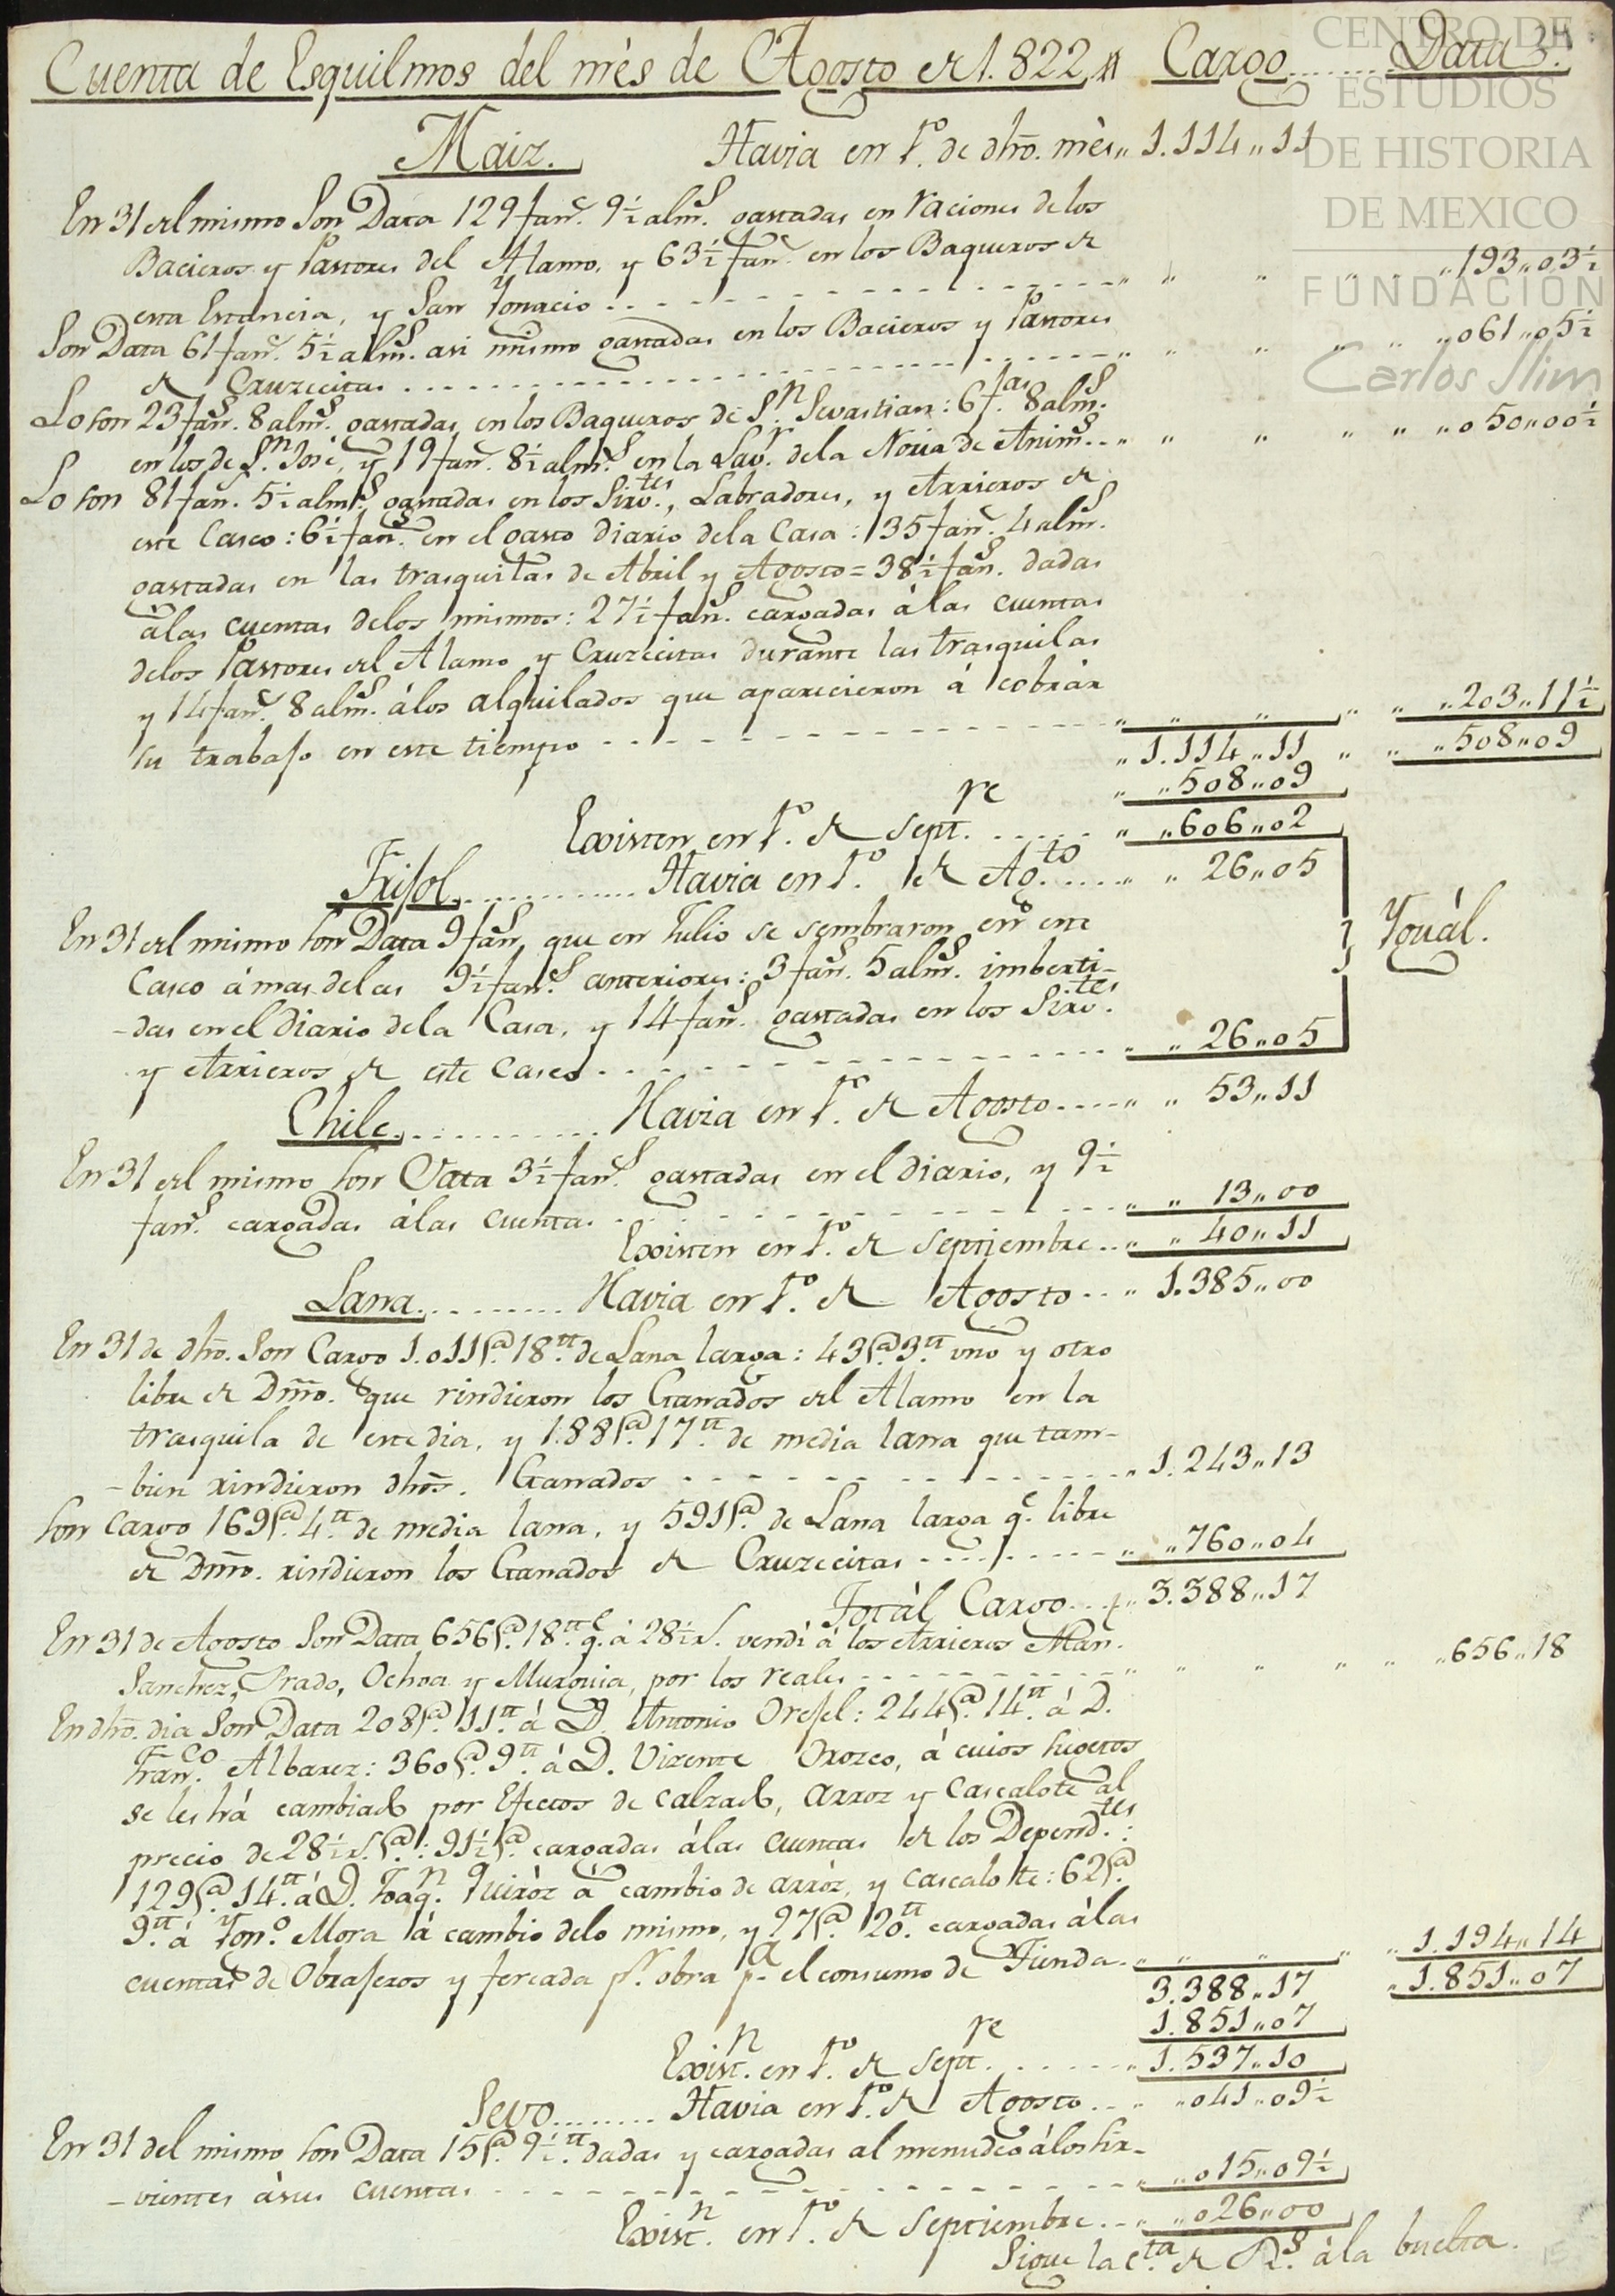 Cuenta de Esquilmos del més de Agosto de 1.822,, Cargo....... Data 3ª.
CENTRO DE
ESTUDIOS
DE HISTORIA
DE MEXICO
FUNDACIÓN
Carlos Slim
Maiz. Havia en 1º. de dhõ. més,, 1.114,,11
En 31 del mismo Son Data 129 fans. 9½ alms. gastadas en raciones de los
Bacieros y Pastores del Alamo, y 63½ fans. en los Baqueros de
esta Estancia, y San Ygnacio . . . ,, ,, ,, ,, ,, ,,193,,03½
Son Data 61 fans. 5½ alms. asi mismo gastadas en los Bacieros y Pastores
de Cruzecitas . . . ,, ,, ,, ,, ,, ,,061,,05½
Lo son 23 fans. 8 alms. gastadas en los Baqueros de Sn. Sevastian: 6 fas. 8 alms.
en los de Sn. José, y 19 fans. 8½ alms. en la Lavr. de la Noria de Anims. . ,, ,, ,, ,, ,, ,,050,,00½
Lo son 81 fans. 5½ alms. gastadas en los Sirvtes., Labradores, y Arrieros de
este Casco: 6½ fans. en el gasto diario de la Casa: 35 fans. 4 alms.
gastadas en las trasquilas de Abril y Agosto = 38½ fans. dadas
á las cuentas de los mismos: 27½ fans. cargadas á las cuentas
de los Pastores del Alamo y Cruzecitas durante las trasquilas
y 14 fans. 8 alms. á los alquilados que aparecieron á cobrar
su trabajo en este tiempo . . . ,, ,, ,, ,, ,, ,,203,,11½
,,1.114,,11 ,, ,, ,,508,,09
,, ,,508,,09
Existen en 1º. de Septre. . . . . ,, ,,606,,02
Frijol . . . Havia en 1º. de Agto. . . . ,, ,, 26,,05
En 31 del mismo son Data 9 fans. que en Julio se sembraron en este
Casco á mas de las 9½ fans. anteriores: 3 fans. 5 alms. imberti-
-das en el diario de la Casa, y 14 fans. gastadas en los Sirvtes.
Yguál.
y Arrieros de este Casco . . . ,, ,, 26,,05
Chile . . . Havia en 1º. de Agosto . . . ,, ,, 53,,11
En 31 del mismo son Data 3½ fans. gastadas en el diario, y 9½
fans. cargadas á las cuentas . . . ,, ,, 13,,00
Existen en 1º. de Septiembre . . ,, ,, 40,,11
Lana . . . Havia en 1º. de Agosto . . ,, 1.385,,00
En 31 de dhõ. Son Cargo 1.011@. 18tt. de Lana larga: 43@. 3tt. uno y otro
libre de Dmõ. que rindieron los Ganados del Alamo en la
trasquila de este dia, y 188@. 17tt. de media lana que tam-
-bien rindieron dhõs. Ganados . . . ,,1.243,,13
Son Cargo 169@. 4tt. de media lana, y 591@. de Lana larga qe. libre
de Dmõ. rindieron los Ganados de Cruzecitas . . . ,, ,,760,,04
Totál Cargo . . . ,,3.388,,17
En 31 de Agosto Son Data 656@. 18tt. qe. á 28½ rs. vendí á los Arrieros Man.
Sanchez, Prado, Ochoa y Murguia, por los reales . . . ,, ,, ,, ,, ,, ,,656,,18
En dhõ. dia Son Data 208@. 11tt. á D. Antonio Orejel: 244@. 14tt. á D.
Franco. Albarez: 360@. 9tt. á D. Vizente Orozco, á cuios sugetos
se les há cambiado por Efectos de calzado, arroz y Cascalote al
precio de 28½ rs. @.: 91½@. cargadas á las cuentas de los Dependtes.:
129@. 14tt. á D. Joaqn. Quiróz á cambio de arróz, y cascalote: 62@.
9tt. á Ygno. Mora á cambio de lo mismo, y 97@. 20tt. cargadas á las
cuentas de Obrajeros y fercada pr. obra pa. el consumo de Tienda. ,, ,, ,, ,, ,,1.194,,14
3.388,,17 ,,1.851,,07
1.851,,07
Existn. en 1º. de Septre. . . . ,,1.537,,10
Sevo . . . Havia en 1º. de Agosto . . ,, ,,041,,09½
En 31 del mismo son Data 15@. 9½tt. dadas y cargadas al menudeo á los Sir-
-vientes á sus cuentas . . . ,, ,,015,,09½
Existn. en 1º. de Septiembre . . ,, ,,026,,00
Sigue la Cta. de Rs. á la buelta.